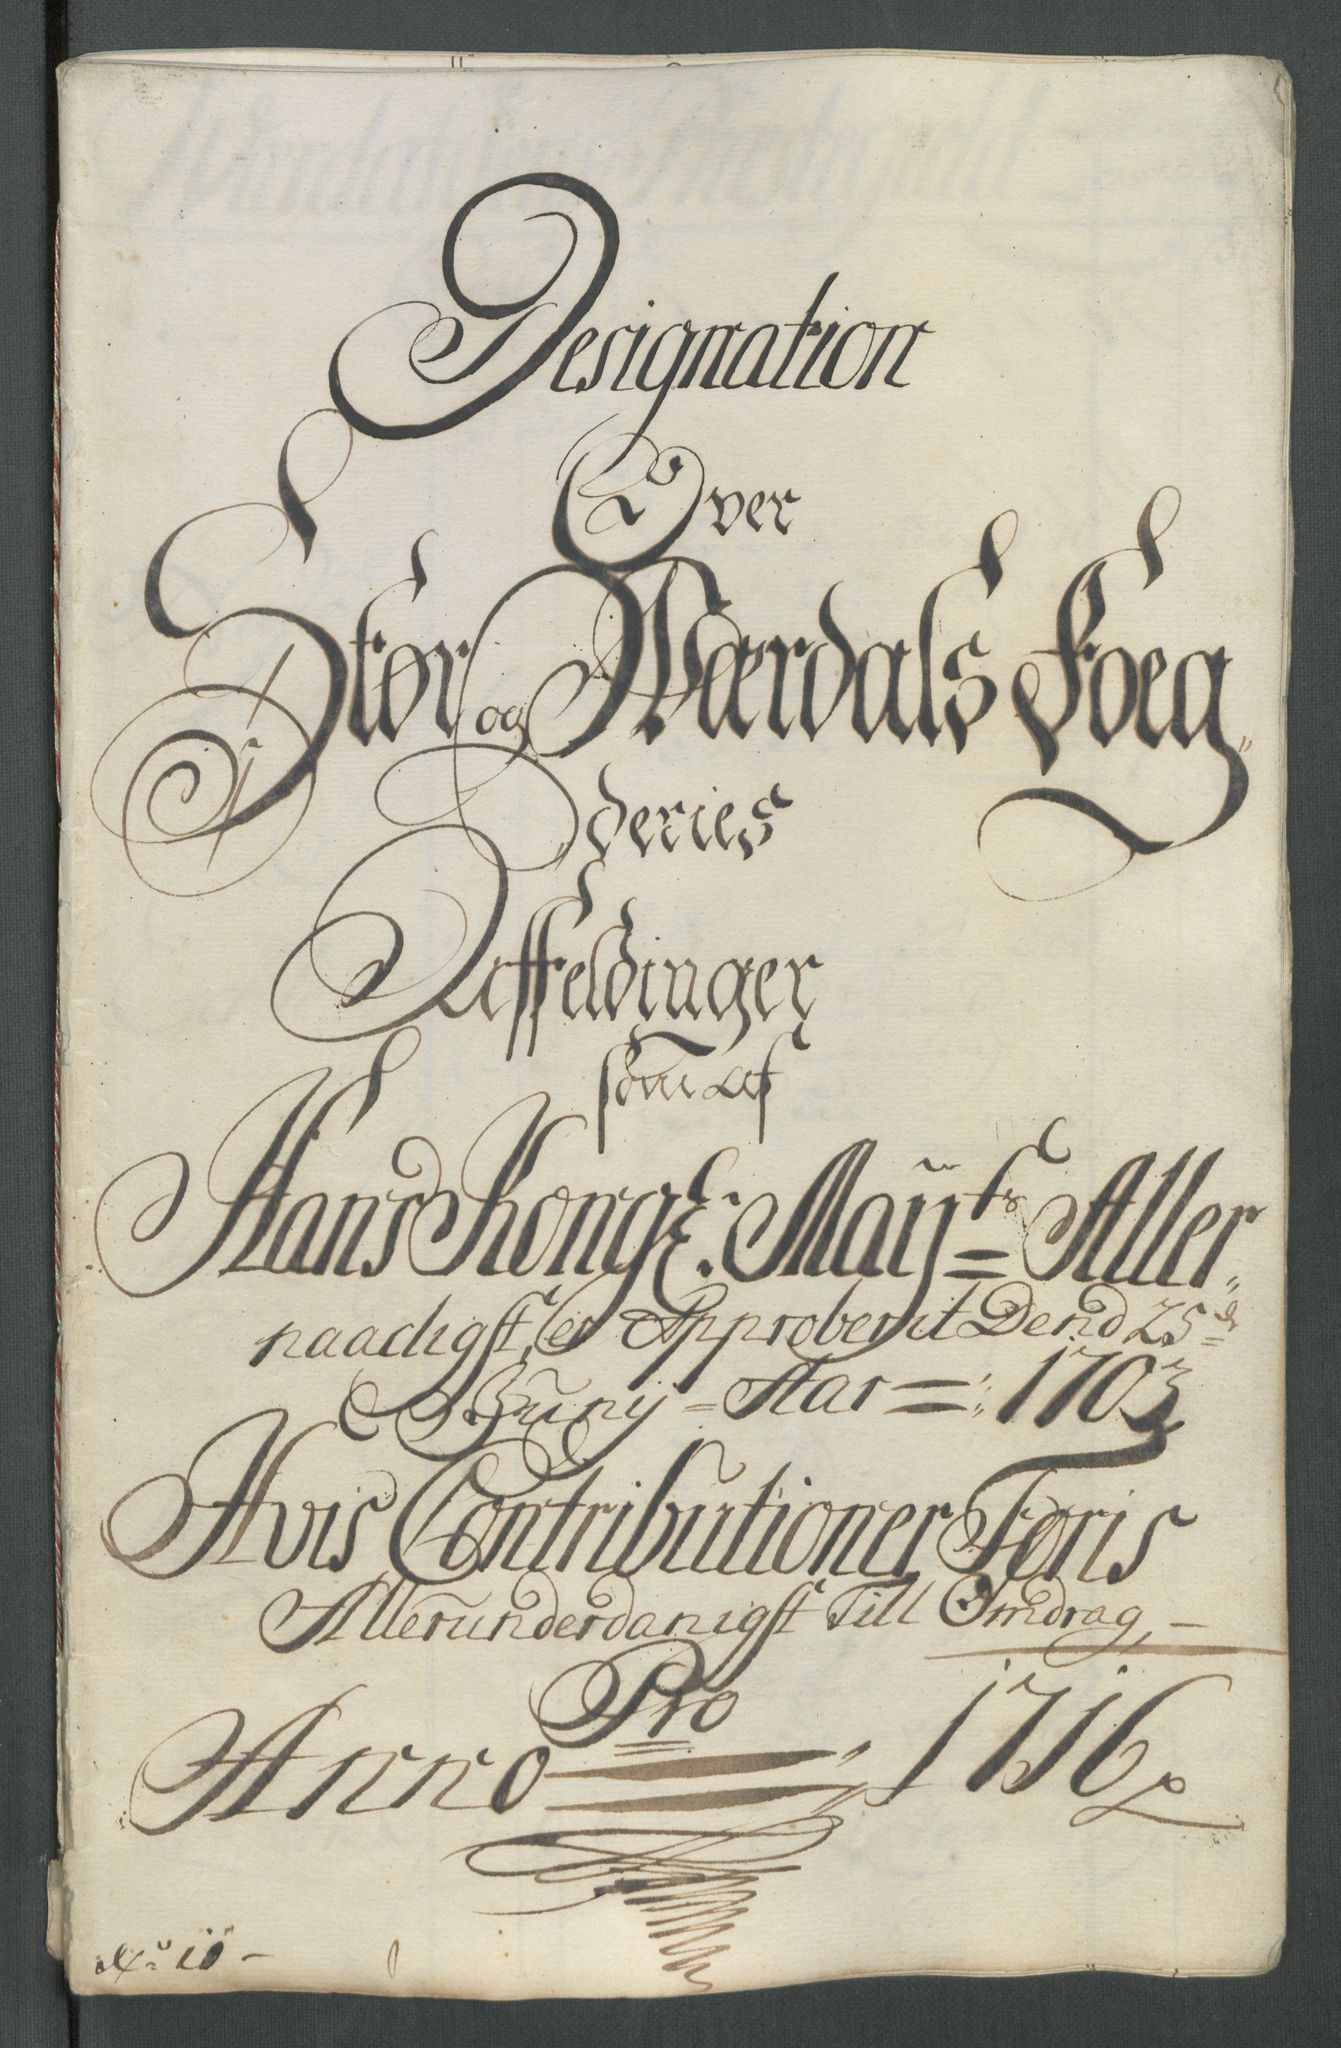 Designation
Over
Stør og Værdals Foeg„
„deries
Affeldinger
som af
Hans Kongl: Maÿts Aller„
naadigst er Approberit Dend 25de
Junij = Aar = 1703
Hvis Contributioner Føris
Allerunderdanigst Till Indrag,
Pro
Anno 1716
No 10